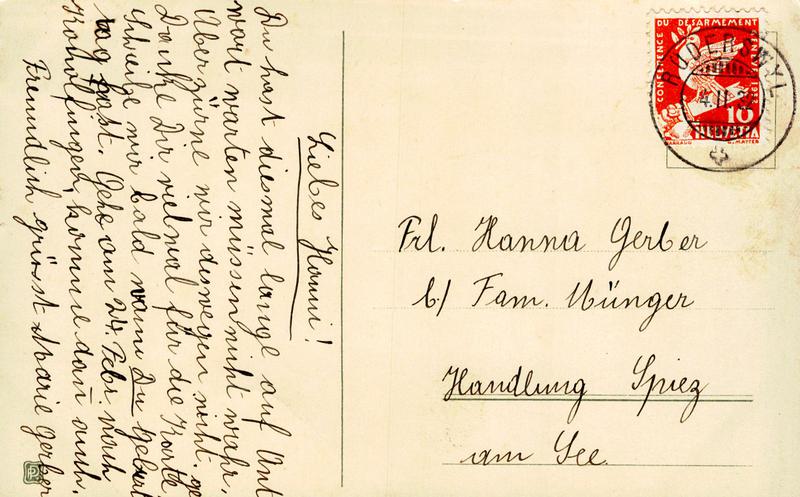 Liebes Hanni!
Du hast diesmal lange auf Ant
wort warten müssen nicht wahr.
Überzürne mir deswegen nicht. ge
Danke Dir vielmal für die Karte.
Schreibe mir bald wann Du Geburt
tag hast. Gehe am 24. Febr. nach
Konolfingen, komme dan̄ auch.
Freundlich grüsst Marie Gerber
CONFERENCE DU DESARMEMENT
GENEVE 1932
10
HELVETIA
RODERSWYL
4.II.32
Frl. Hanna Gerber
b/ Fam. Münger
Handlung Spiez
am See.